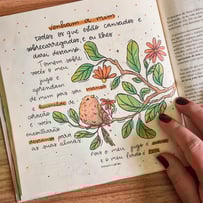 venham a mim
todos os que estão cansados e
sobrecarregados, e eu lhes
darei descanso.
Tomem sobre
vocês o meu
jugo e
aprendam
de mim pois sou manso
e humilde de
coração e
vocês
encontrarão
descanso para
as suas almas.
Pois o meu jugo é
e o meu fardo é